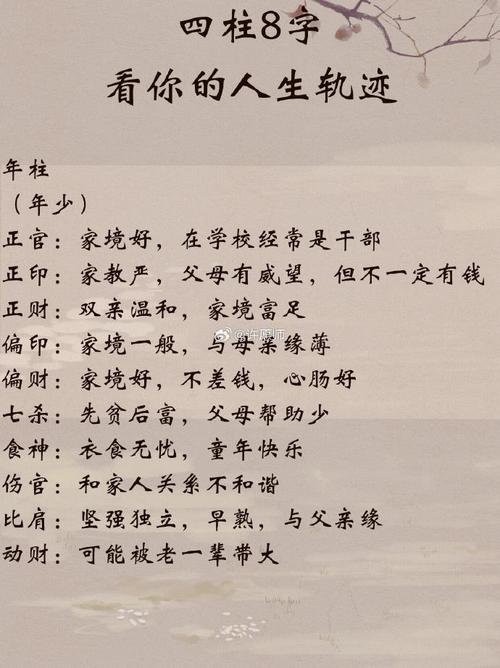 四柱8字
看你的人生轨迹
年柱
（年少）
正官：家境好，在学校经常是干部
正印：家教严，父母有威望，但不一定有钱
正财：双亲温和，家境富足
@许愿师
偏印：家境一般，与母亲缘薄
偏财：家境好，不差钱，心肠好
七杀：先贫后富，父母帮助少
食神：衣食无忧，童年快乐
伤官：和家人关系不和谐
比肩：坚强独立，早熟，与父亲缘
动财：可能被老一辈带大